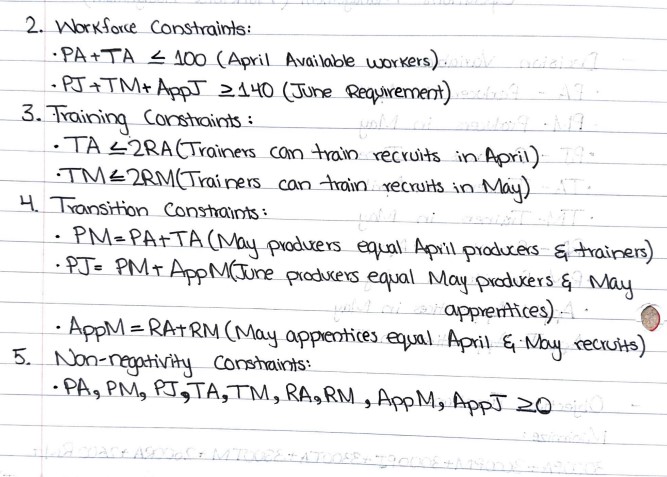 2. Workforce Constraints:
· PA+TA ≤ 100 (April Available workers)
· PJ+TM+AppJ ≥140 (June Requirement)
3. Training Constraints:
· TA ≤2RA(Trainers can train recruits in April)
· TM≤2RM(Trainers can train recruits in May)
4. Transition Constraints:
· PM=PA+TA (May producers equal April producers & trainers)
· PJ= PM+ AppM(June producers equal May producers & May
apprentices)
· AppM = RA+RM (May apprentices equal April & May recruits)
5. Non-negativity Constraints:
· PA, PM, PJ, TA, TM, RA, RM, AppM, AppJ ≥0